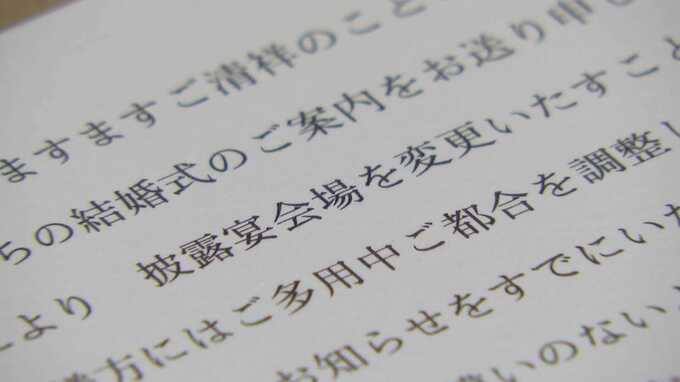 ますますご清祥のこと
ちの結婚式のご案内をお送り申し
より 披露宴会場を変更いたすこと
方にはご多用中ご都合を調整し
お知らせをすでにいた
いのないよ